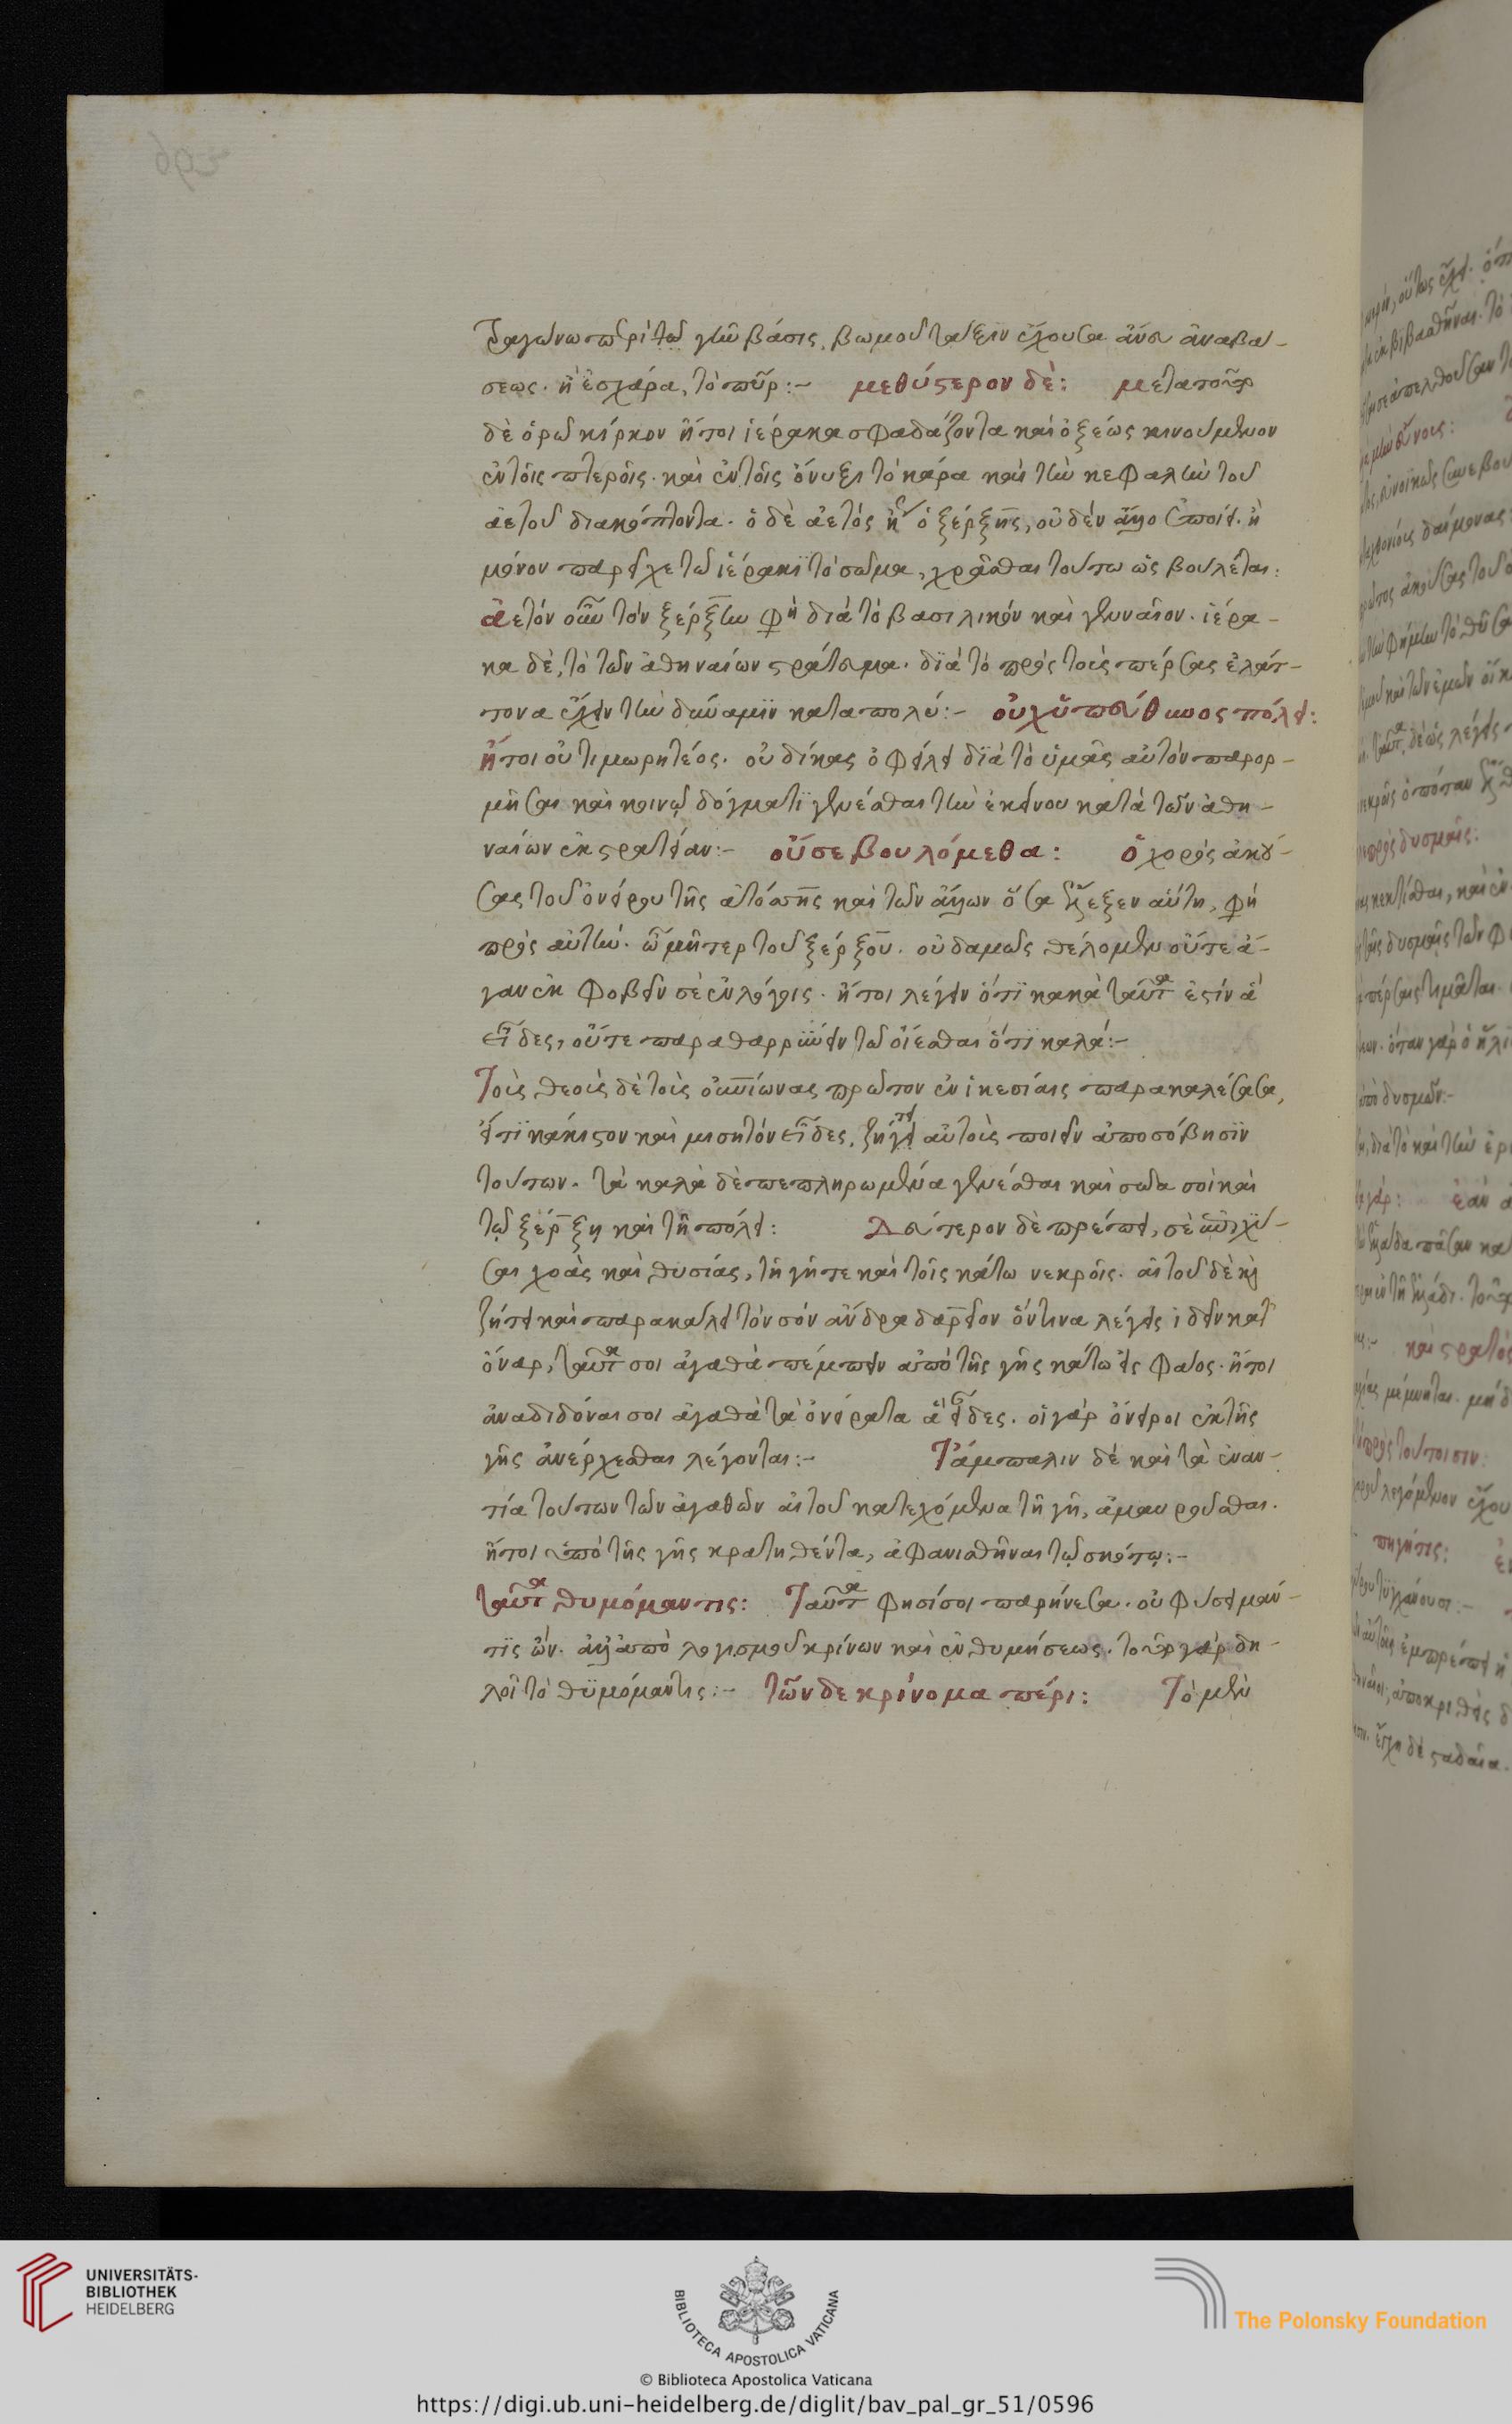 τραγώνω περὶ τὴν γῆν βάσις, βωμοῦ τάξιν ἔχουσα ἄνευ ἀναβά-
σεως. ἢ ἐσχάρα, τὸ πῦρ:- μεθύστερον δὲ: μετὰ τοῦτο
δὲ ὁρῶ κίρκον ἤτοι ἱέρακα σφαδάζοντα καὶ ὀξέως κινούμενον
ἐν τοῖς πτεροῖς. καὶ ἐν τοῖς ὄνυξι τὸ κάρα καὶ τὴν κεφαλὴν τοῦ
ἀετοῦ διακόπτοντα. ὁ δὲ ἀετὸς ὁ ξέρξης, οὐδὲν ἄλλο ἐποίει. ἢ
μόνον παρεῖχε τῶ ἱέρακι τὸ σῶμα, χρᾶσθαι τούτω ὡς βούλεται:
ἀετὸν οὖν τὸν ξέρξην φη διὰ τὸ βασιλικὸν καὶ γενναῖον. ἱέρα-
κα δὲ, τὸ τῶν ἀθηναίων στράτευμα. διὰ τὸ πρὸς τοὺς πέρσας ἐλάτ-
τονα ἔχειν τὴν δύναμιν κατὰ πολύ:- οὐχ ὑπεύθυνος πόλει:
ἤτοι οὐ τιμωρητέος. οὐ δίκας ὀφείλει διὰ τὸ ὑμᾶς αὐτὸν παρορ-
μῆσαι καὶ κοινῷ δόγματι γενέσθαι τὴν ἐκείνου κατὰ τῶν ἀθη-
ναίων ἐκστρατείαν:- οὔ σε βουλόμεθα: ὁ χορὸς ἀκού-
σας τοῦ ὀνείρου τῆς ἀτόσσης καὶ τῶν ἄλλων ὅσα ἔλεξεν αὐτη, φη
πρὸς αὐτήν. ὦ μῆτερ τοῦ ξέρξου. οὐδαμῶς θέλομεν οὔτε ἄ-
γαν ἐκφοβεῖν σὲ ἐν λόγοις. ἤτοι λέγειν ὅτι κακὰ ταῦτα ἐστὶν ἃ
εἶδες, οὔτε παραθαρρύνειν τῶ οἴεσθαι ὅτι καλά:-
Τοὺς θεοὺς δὲ τοὺς οὐρανίωνας πρῶτον ἐν ἱκεσίαις παρακαλέσασα,
εἴ τι κάκιστον καὶ μισητὸν εἶδες, ζήτει αὐτοὺς ποιεῖν ἀποσόβησιν
τούτων. τὰ καλὰ δὲ πεπληρωμένα γενέσθαι καὶ σῶα σοὶ καὶ
τῷ ξέρξη καὶ τῇ πόλει: Δεύτερον δὲ πρέπει, σὲ ἐπιχεῦ-
σαι χοὰς καὶ θυσίας, τῇ γῇ τε καὶ τοῖς κάτω νεκροῖς. αἰτοῦ δὲ καὶ
ζήτει καὶ παρακάλει τὸν σὸν ἄνδρα δαρεῖον ὅντινα λέγεις ἰδεῖν κατ
ὄναρ, ταῦτα σοι ἀγαθὰ πέμπειν ἀπὸ τῆς γῆς κάτω εἰς φάος. ἤτοι
ἀναδιδόναι σοι ἀγαθὰ τὰ ὀνείρατα ἃ εἶδες. οἱ γὰρ ὄνειροι ἐκ τῆς
γῆς ἀνέρχεσθαι λέγονται:- Τἄμπαλιν δὲ καὶ τὰ ἐναν-
τία τούτων τῶν ἀγαθῶν αἰτοῦ κατεχόμενα τῇ γῇ, ἀμαυροῦσθαι.
ἤτοι ὑπὸ τῆς γῆς κρατηθέντα, ἀφανισθῆναι τῷ σκότῳ:-
ταῦτα θυμόμαντις: Ταῦτα φησί σοι παρήνεσα. οὐ φύσει μάν-
τις ὤν. ἀλλ ἀπὸ λογισμοῦ κρίνων καὶ ἐνθυμήσεως. τοῦτο γὰρ δη-
λοῖ τὸ θυμόμαντις:- τῶνδε κρίνομα πέρι: Τὸ μὲν
UNIVERSITÄTS-
BIBLIOTHEK
HEIDELBERG
BIBLIOTECA APOSTOLICA VATICANA
The Polonsky Foundation
© Biblioteca Apostolica Vaticana
https://digi.ub.uni-heidelberg.de/diglit/bav_pal_gr_51/0596